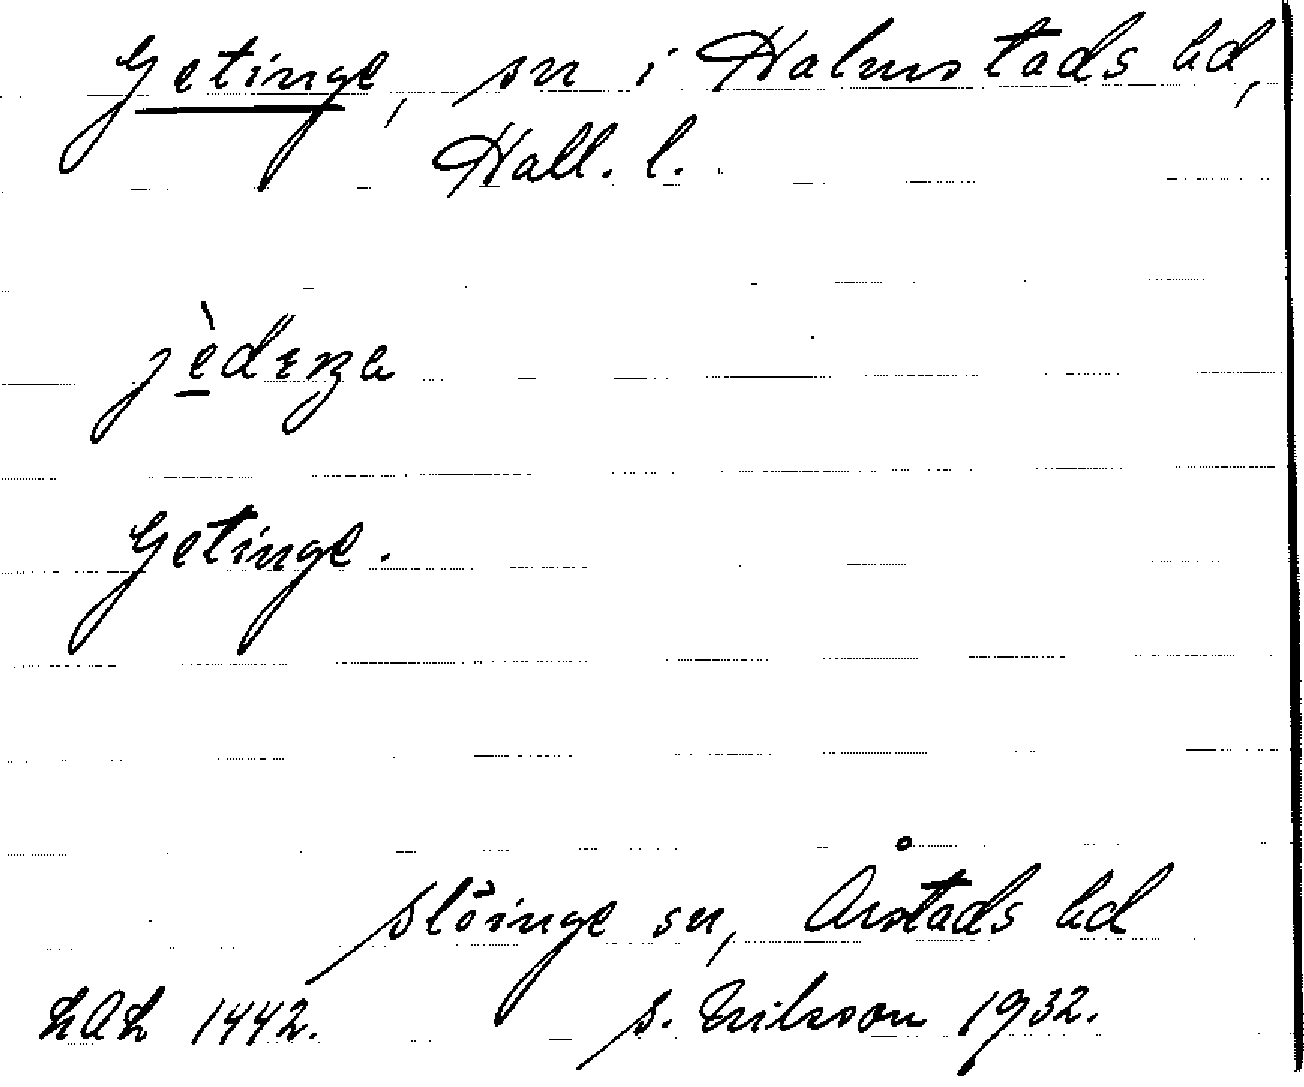 Getinge, sn i Halmstads hd,
Hall. l.
jèdɪŋa
Getinge.
Slöinge sn, Årstads hd
1442. S. Erikson 1932.